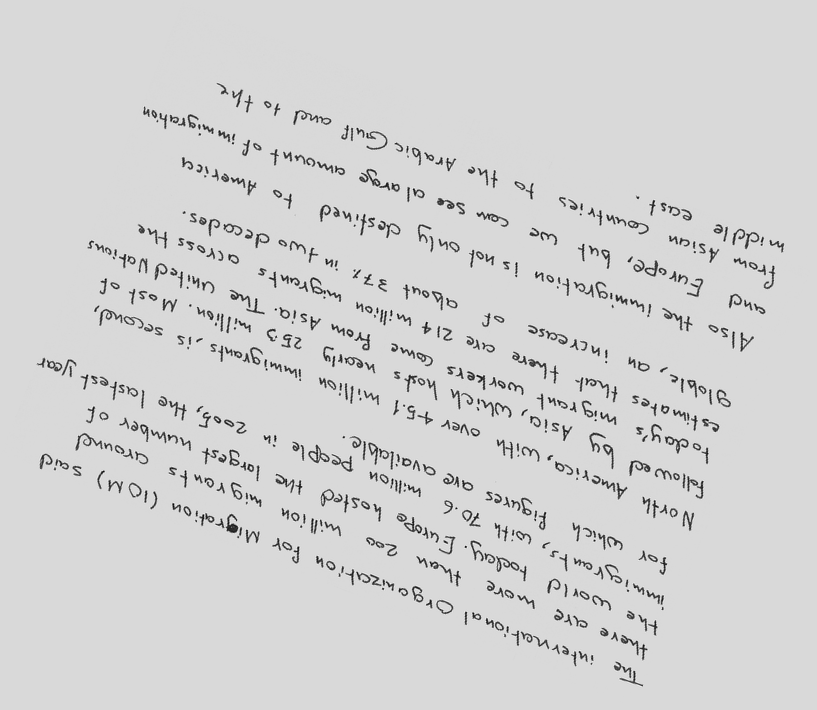 The international Organization for Migration (IOM) said
there are more than 200 million migrants around
the world today. Europe hosted the largest number of
immigrants, with 70.6 million people in 2005, the lastest year
for which figures are available.
North America, with over 45.1 million immigrants, is second,
followed by Asia, which hosts nearly 25.3 million. Most of
today's migrant workers come from Asia. The United Nations
estimates that there are 214 million migrants across the
globle, an increase of about 37% in two decades.
Also the immigration is not only destined to America
and Europe, but we can see alarge amount of immigration
from Asian countries to the Arabic Gulf and to the
middle east.